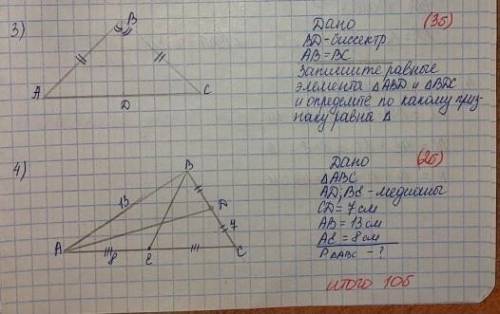 3)
B
A
D
C
Дано (3б)
BD-биссектр
AB=BC
Запишите равные
элемента ΔABD и ΔBDC
и определите по какому приз-
наку равна Δ
4)
B
13
D
7
A
8
E
C
Дано (2б)
ΔABC
AD; BE - медианы
CD = 7 см
AB = 13 см
AE = 8 см
PΔABC - ?
итого 10б